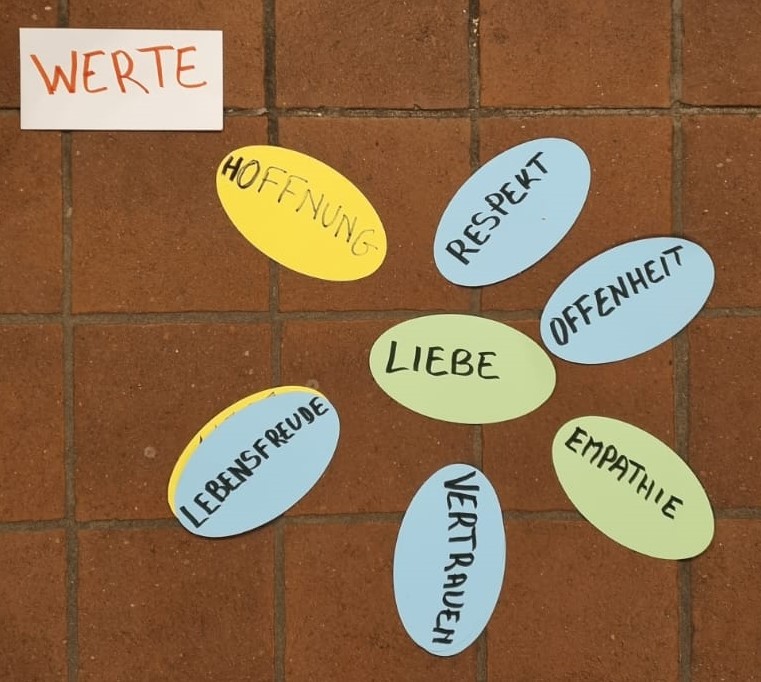 WERTE
HOFFNUNG
RESPEKT
OFFENHEIT
LIEBE
LEBENSFREUDE
EMPATHIE
VERTRAUEN